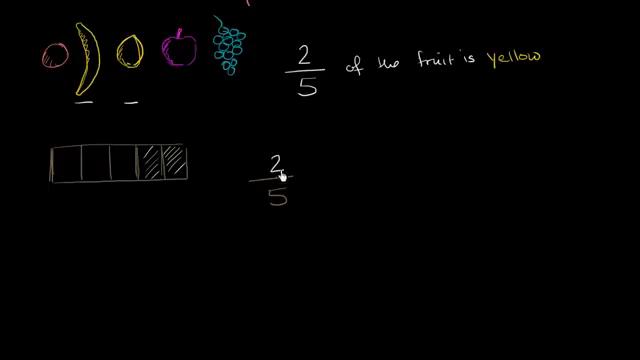 2/5 of the fruit is yellow
2/5